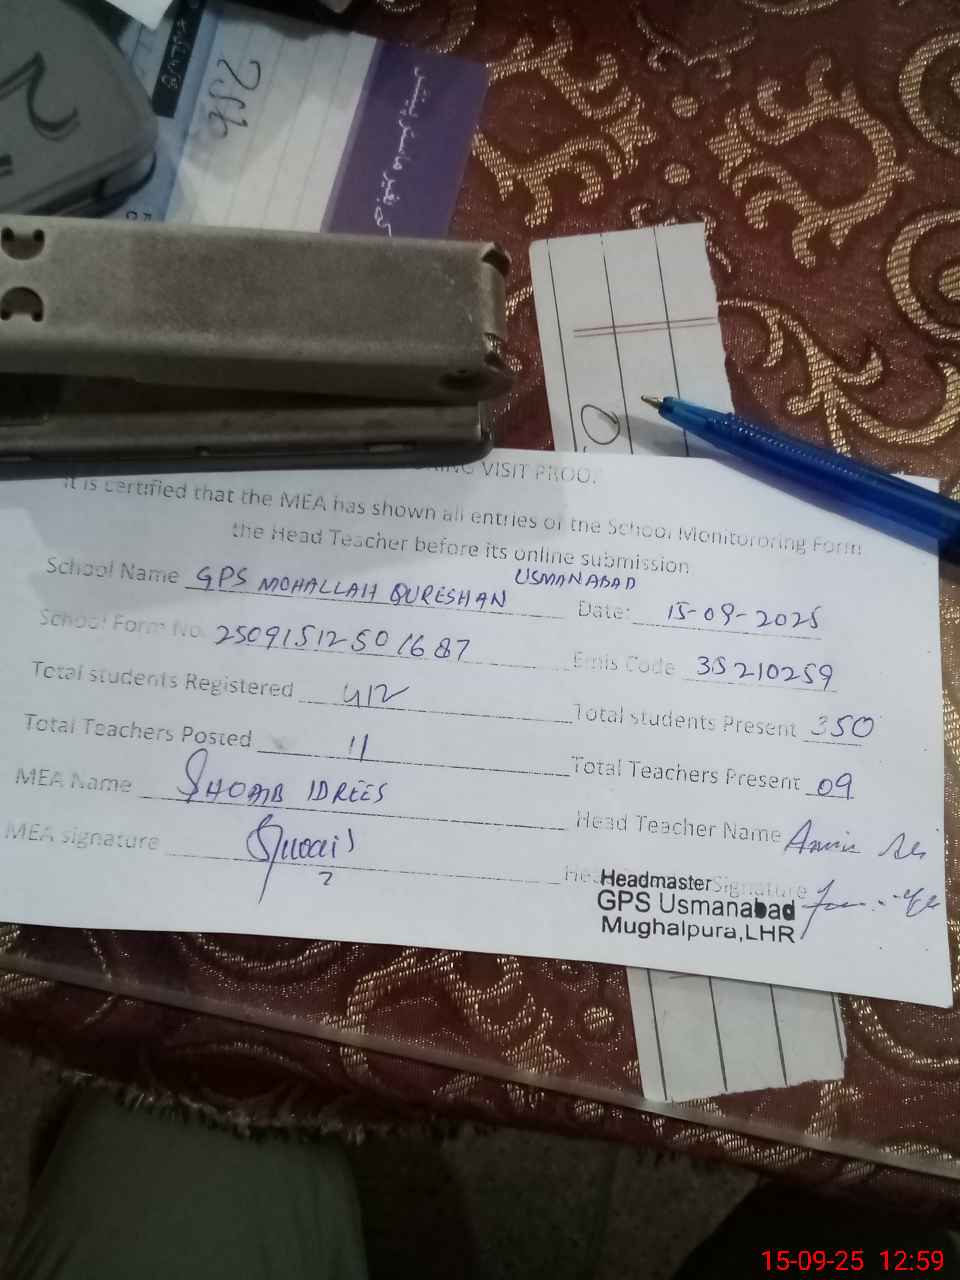 256
کی بغیر مانسٹر پینٹس
RING VISIT PROO
It is certified that the MEA has shown all entries of the School Monitororing Form
the Head Teacher before its online submission
School Name GPS MOHALLAH QURESHAN USMANABAD Date: 15-09-2025
School Form No. 250915125501687 Emis Code 35210259
Total students Registered 412 Total students Present 350
Total Teachers Posted 11 Total Teachers Present 09
MEA Name SHOAIB IDREES Head Teacher Name
MEA signature Shoaib Signature
Headmaster
GPS Usmanabad
Mughalpura,LHR
15-09-25 12:59